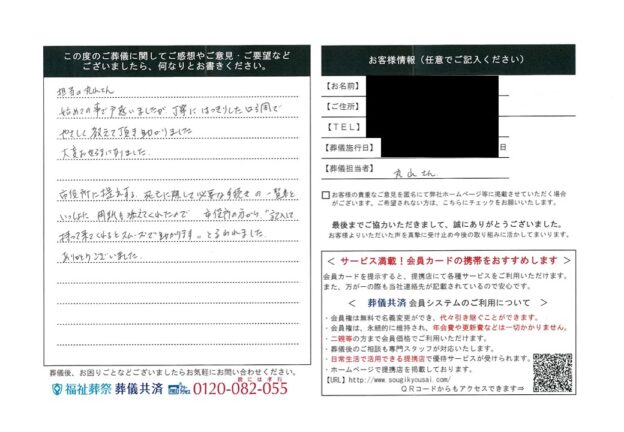 この度のご葬儀に関してご感想やご意見・ご要望など
ございましたら、何なりとお書きください。
担当の丸山さん
始めての事で戸惑いましたが 丁寧に はっきりした口調で
やさしく 教えて頂き助かりました
大変お世話になりました。
市役所に提出する、死亡に際して必要な手続き の 一覧表と
いっしょに 用紙も添えてくれたので 市役所の方から、"記入して
持って来てくれるとスムーズで助かります"。と言われました。
ありがとうございました。
葬儀後、お困りごとなどございましたらお気軽にお問い合わせください。
福祉葬祭 葬儀共済 0120-082-055
お客様情報（任意でご記入ください）
【お名前】
【ご住所】
【TEL】
【葬儀施行日】 日
【葬儀担当者】 丸山さん
□ お客様の貴重なご意見を匿名にて弊社ホームページ等に掲載させていただく場合
がございます。ご希望されない方は、こちらにチェックをお願いいたします。
最後までご協力いただきまして、誠にありがとうございました。
お客様よりいただいた声を真摯に受け止め今後の取り組みに活かしてまいります。
＜ サービス満載！会員カードの携帯をおすすめします ＞
会員カードを提示すると、提携店にて各種サービスをご利用いただけます。
また、万が一の際も当社連絡先が記載されているので安心です。
＜ 葬儀共済 会員システムのご利用について ＞
・会員権は無料で名義変更ができ、代々引き継ぐことができます。
・会員権は、永続的に維持され、年会費や更新費などは一切かかりません。
・二親等の方まで会員価格でご利用いただけます。
・葬儀後のご相談も専門スタッフが対応いたします。
・日常生活で活用できる提携店で優待サービスが受けられます。
・ホームページで提携店を掲載しております。
【URL】http://www.sougikyousai.com/
QRコードからもアクセスできます⇒